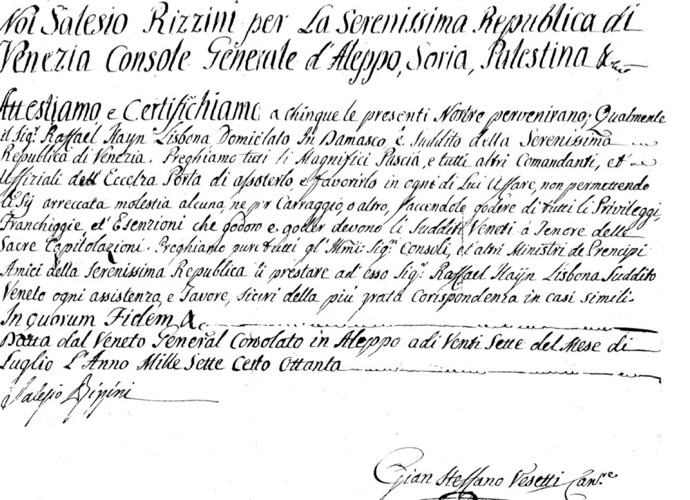 Noi Salesio Rizzini per La Serenissima Republica di
Venezia Console Generale d'Aleppo, Soria, Palestina &
Attestiamo, e Certifichiamo a chinque le presenti Nostre perveniranno; Qualmente
il Sig.r Raffael Haÿn Lisbona Domiciato In Damasco è Suddito della Serenissima
Republica di Venezia. Preghiamo tutti li Magnifici Pascià, e tutti altri Comandanti, et
Uffiziali dell Eccelza Porta di assisterlo, e favorirlo in ogni di Lui Affare, non permettendo
li Sij arreccata molestia alcuna, ne p.r Carraggio, o altro, faccendole godere di tutti li Privileggi,
Franchiggie, et Esenzioni che godono e goder devono li Sudditi Veneti à Tenore delle
Sacre Capitolazioni. Preghiamo pure tutti gl' Sig.ri Consoli, et altri Ministri de Prencipi
Amici della Serenissima Republica li prestare ad esso Sig.r Raffael Haÿn Lisbona Suddito
Veneto ogni assistenza, e Favore, sicuri della più grata Corispondenza in casi simili.
In quorum Fidem &.
Datta dal Veneto General Consolato in Aleppo adi Venti Sette del Mese di
Luglio L'Anno Mille Sette Cento Ottanta
Salesio Rizzini
Gian Steffano Vesetti Can.re